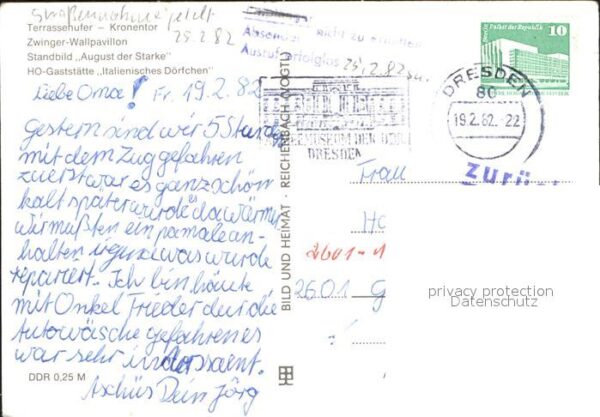 Straßenname fehlt
25.2.82
Terrassenufer – Kronentor
Zwinger-Wallpavillon
Standbild „August der Starke“
HO-Gaststätte „Italienisches Dörfchen“
Liebe Oma! Fr. 19.2.82
Gestern sind wir 5 Stunden
mit dem Zug gefahren
zuerst war es ganz schön
kalt später wurde da wärmer
wir mußten ein pamale an-
halten irgend was wurde
repariert. Ich bin heute
mit Onkel Frieder dur die
Autowäsche gefahren es
war sehr inderssent.
Tschüs Dein Jörg
DDR 0,25 M
BILD UND HEIMAT · REICHENBACH (VOGTL)
nicht zu ermitteln
Absender
Ausruf erfolglos 25.2.82
MUSEUM DER DDR
DRESDEN
10
Palast der Republik
DRESDEN
80
19.2.82.-22
zurü
Frau
2601-1
2601 G
privacy protection
Datenschutz